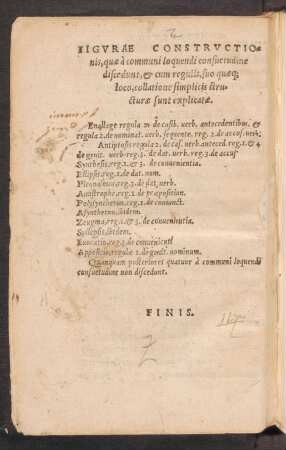 FIGVRÆ CONSTRVCTIO-
nis, quæ à communi loquendi consuetudine
discedunt, & cum regulis, suo quæq;
loco, collatione simplicis stru-
cturæ sunt explicatæ.
Enallege regula de casib. verb. antecedentibus, &
regula 2. de nominat. verb. sequente. reg. 2. de accus. verb.
Antiptosis regula 2. de cas. verb. anteced. reg. 1. & 4
de genit. verb. reg. 5. de dat. verb. reg. 3. de accus
Synthesis, reg. 2. & 3. de conuenientia.
Ellipsis, reg. 2. de dat. nom.
Pleonasmus, reg. 3. de dat. verb.
Anastrophe, reg. 2. de præposition.
Polysyntheton, reg. 2. de coniunct.
Asyntheton, ibidem.
Zeugma, reg. 1. & 3. de conuenientia.
Syllepsis, ibidem.
Euocatio, reg. 3 de conuenient
Appositio, regula 2. de genit. nominum.
Quanquam posteriores quatuor à communi loquendi
consuetudine non discedunt.
FINIS.